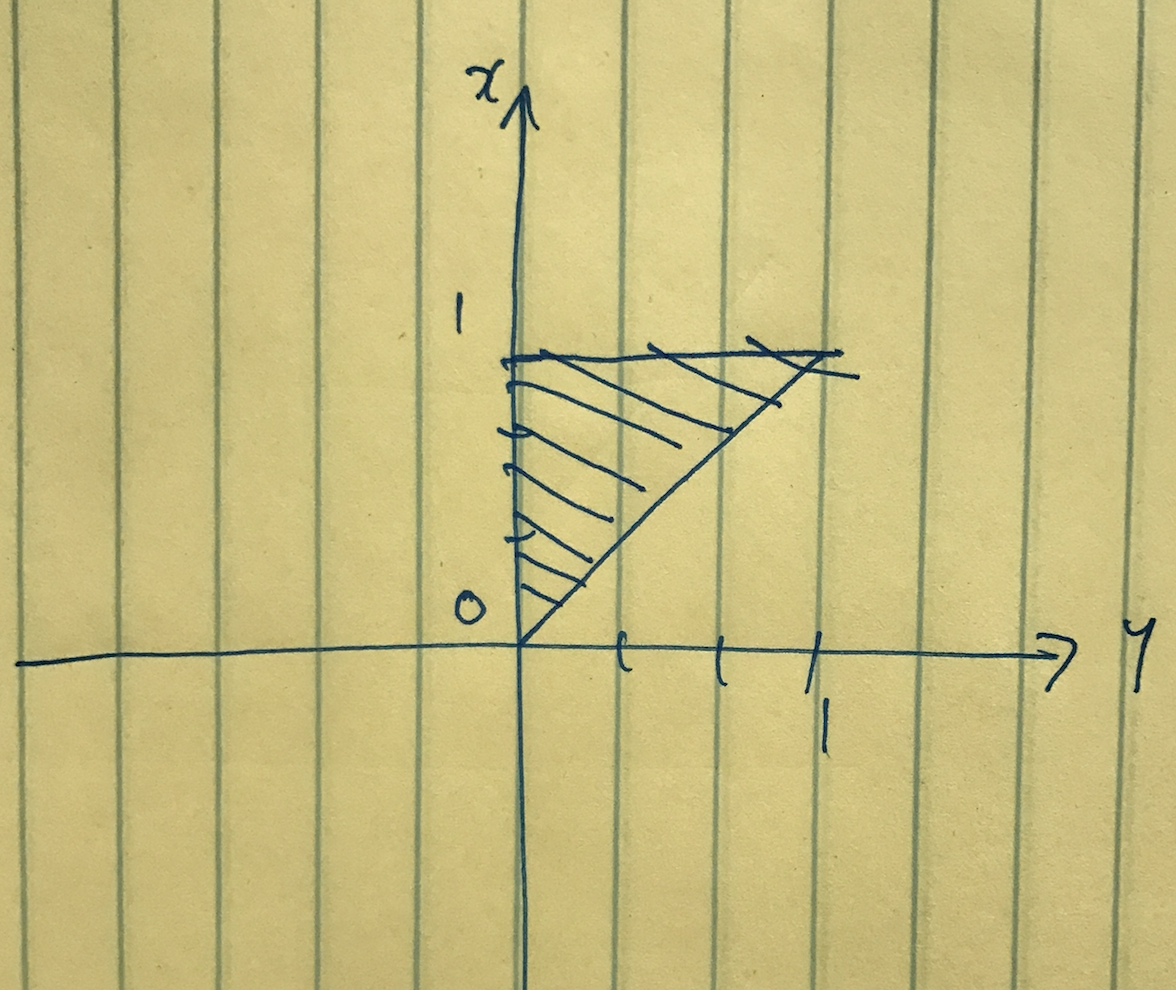 x
1
0
y
1